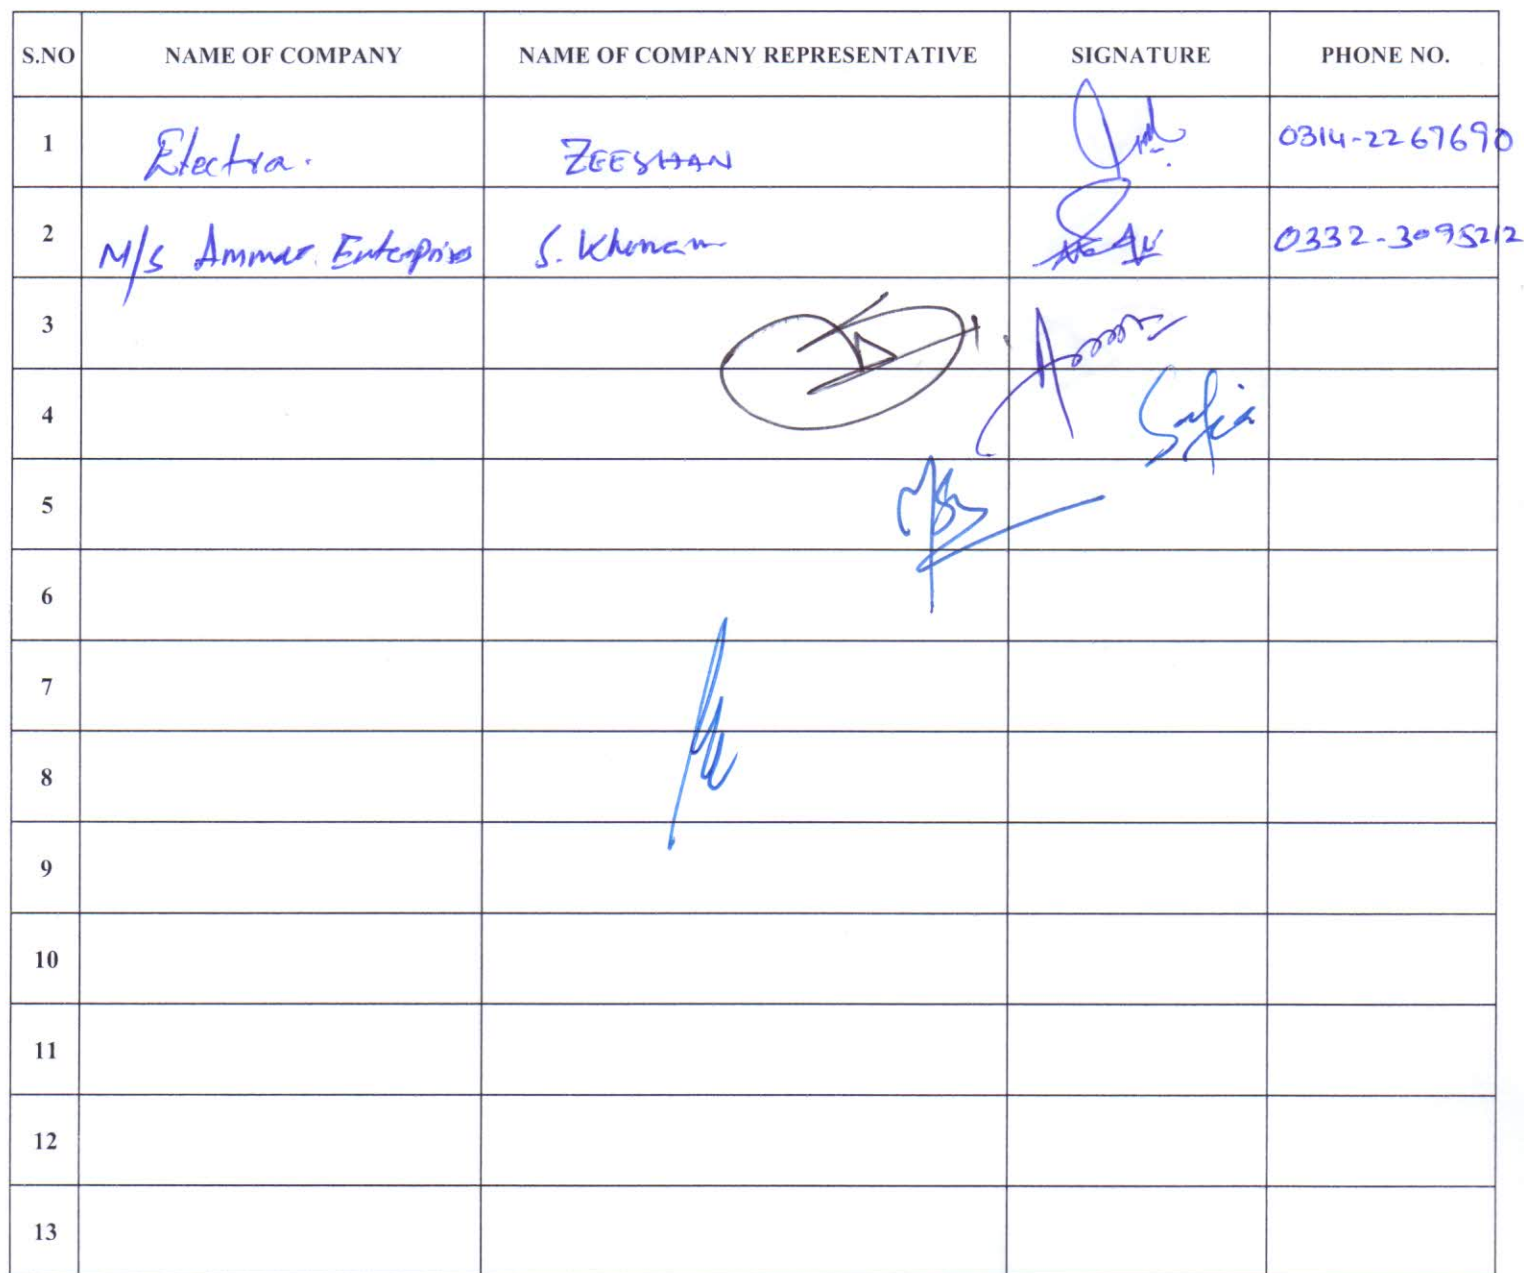 S.NO NAME OF COMPANY NAME OF COMPANY REPRESENTATIVE SIGNATURE PHONE NO.
1 Electra. ZEESHAN 0314-2267690
2 M/S Ammar Enterprises S. Khurram 0332-3095212
3
4 Safia
5
6
7
8
9
10
11
12
13